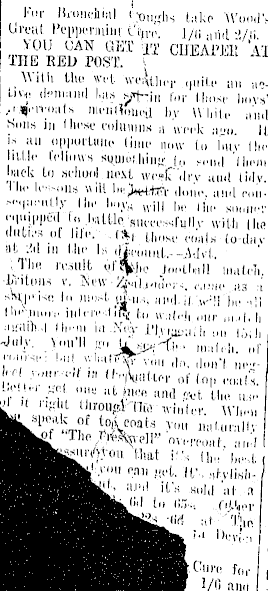 For Bronchial Coughs take Wood's
Great Peppermint Cure. 1/6 and 2/6.
YOU CAN GET IT CHEAPER AT
THE RED POST.
With the wet weather quite an ac-
tive demand has set in for those boys'
overcoats mentioned by White and
Sons in these columns a week ago. It
is an opportune time now to buy the
little fellows something to send them
back to school next week dry and tidy.
The lessons will be better done, and con-
sequently the boys will be the sooner
equipped to battle successfully with the
duties of life. those coats to-day
at 2d in the 1s discount.—Advt.
The result of the football match,
Britons v. New Zealanders, came as a
surprise to most of us, and it will be all
the more interesting to watch our match
against them in New Plymouth on 15th
July. You'll go to see the match, of
course; but whatever you do, don't neg-
lect yourself in the matter of top coats.
Better get one at once and get the use
of it right through the winter. When
speak of top coats you naturally
of "The Presswell" overcoat, and
you that it's the best
you can get. It's stylish-
and it's sold at a
6d to 65s. Other
22s 6d at The
Devon
Cure for
1/6 and